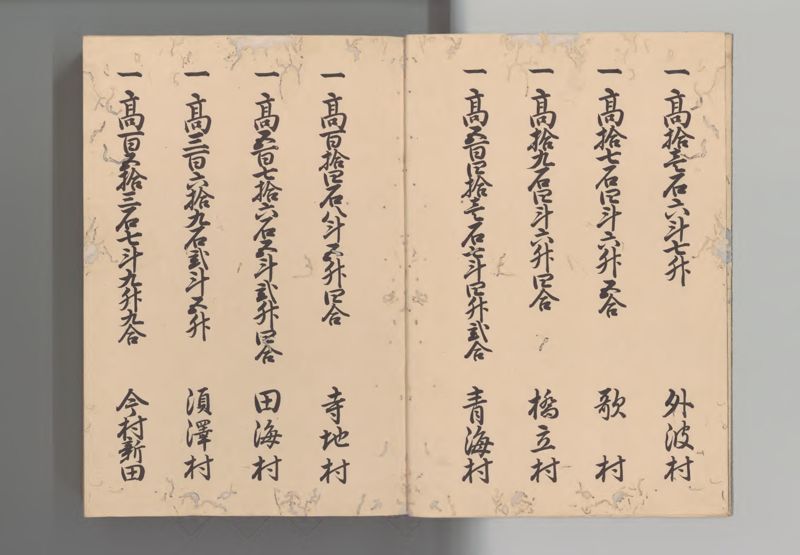 一 高拾壱石六斗七升 外波村
一 高拾七石四斗六升五合 歌 村
一 高拾九石四斗六升四合 橋立村
一 高五百四拾壱石七斗四升弐合 青海村
一 高百拾四石八斗五升四合 寺地村
一 高五百七拾六石五斗弐升四合 田海村
一 高三百六拾九石弐斗五升 須澤村
一 高百五拾三石七斗九升九合 今村新田